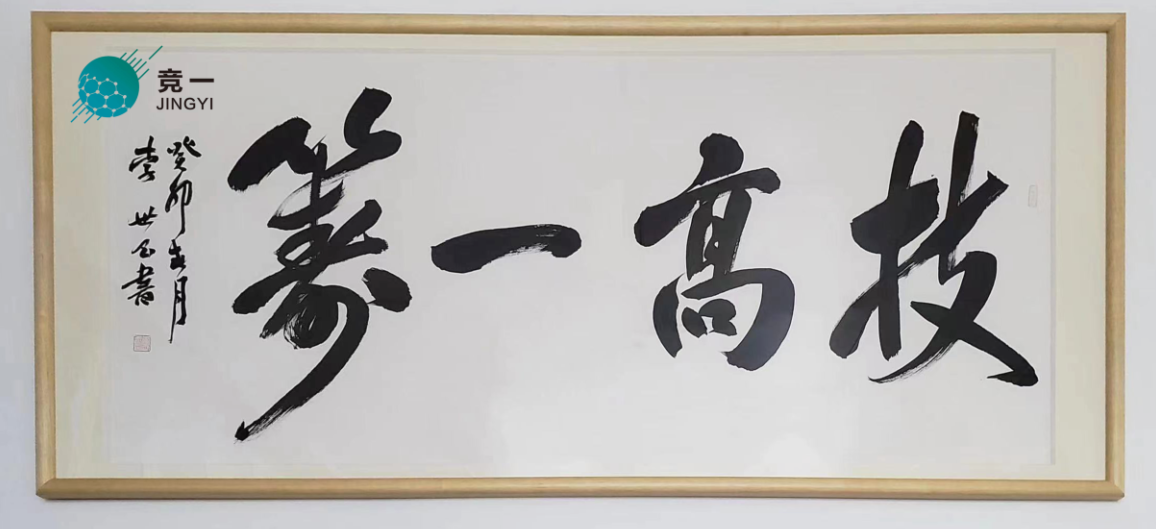 竞一
JINGYI
技高一筹
癸卯春月
李世石書